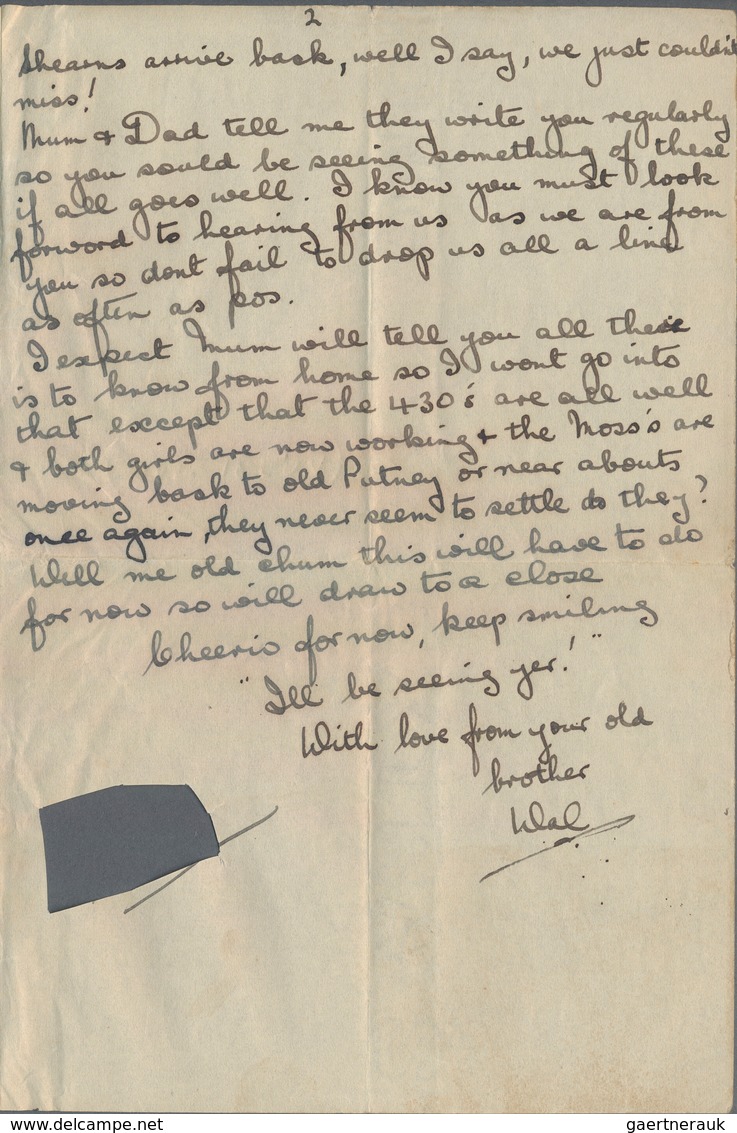 2
Shearns arrive back, well I say, we just couldn't
miss!
Mum & Dad tell me they write you regularly
so you sould be seeing something of these
if all goes well. I know you must look
forword to hearing from us as we are from
you so dont fail to drop us all a line
as often as pos.
I expect Mum will tell you all there
is to know from home so I wont go into
that except that the 430's are all well
& both girls are now working & the Moss's are
moving back to old Putney or near abouts
once again, they never seem to settle do they?
Well me old chum this will have to do
for now so will draw to a close
Cheerio for now, keep smiling
"I'll be seeing yer!"
With love from your old
brother
Wal
gaertnerauk